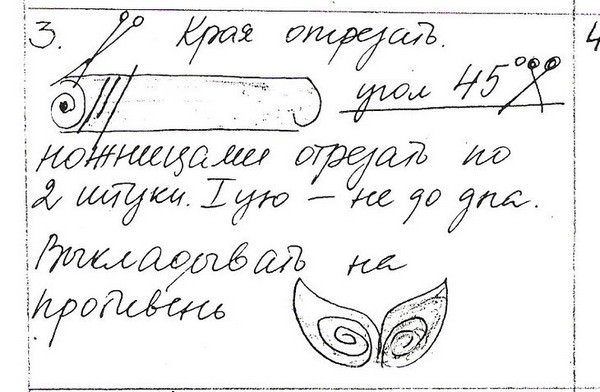 3. Края отрезать.
4
угол 45°
ножницами отрезать по
2 штуки. Iую – не до дна.
Выкладывать на
противень